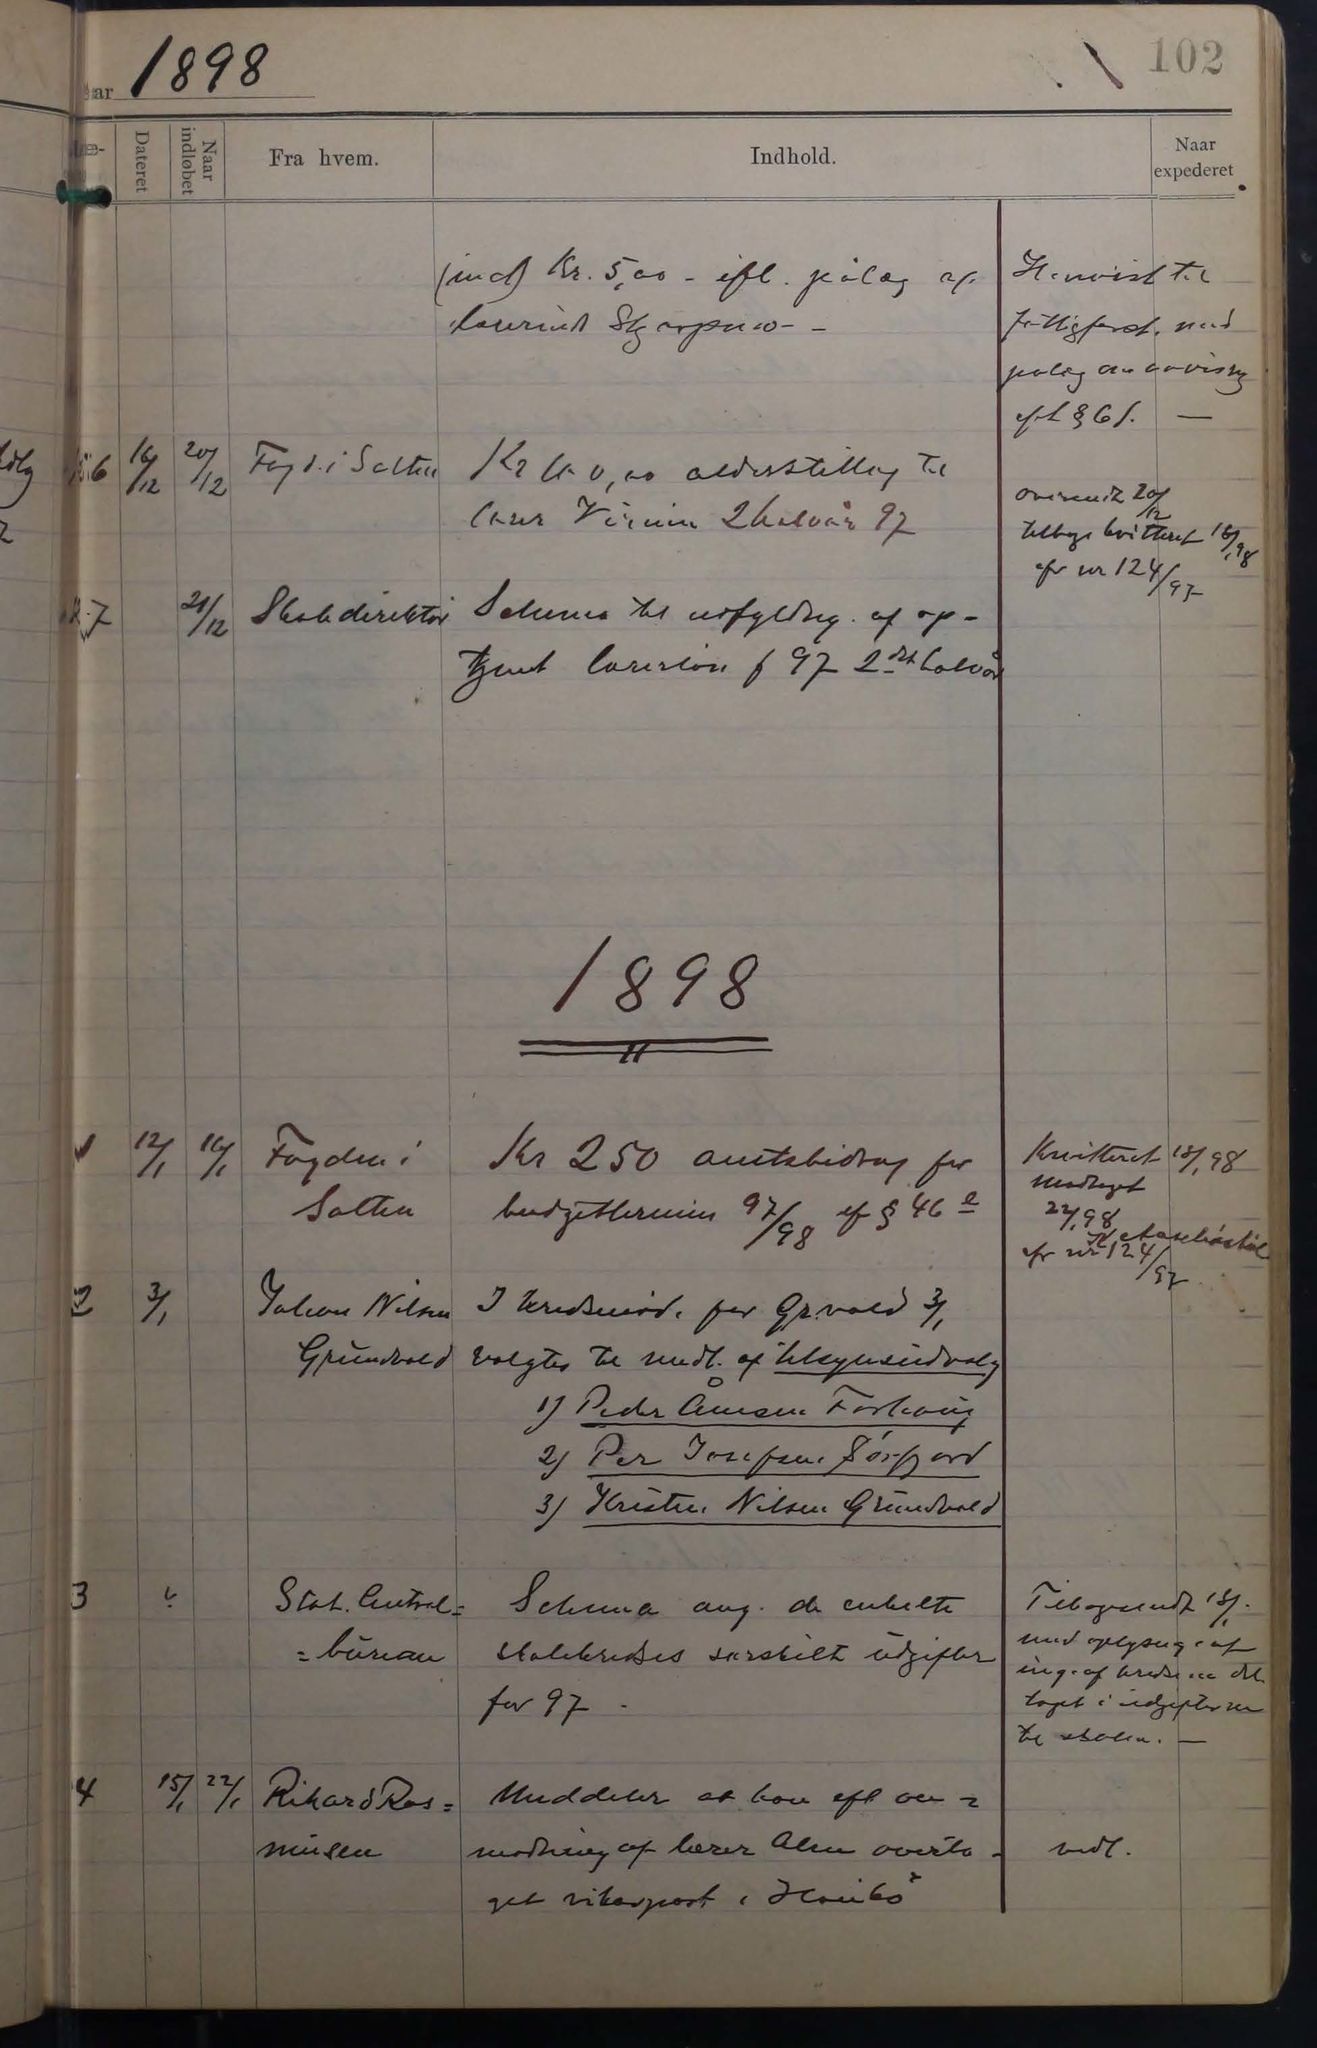 aar 1898
102
Dateret
Naar indløbet
Fra hvem.
Indhold.
Naar expederet
(incl) Kr. 5,00 - ifl. pålæg af
lærerinde
Henvist til
fattigforst. med
pålæg
eft § 61. —
6 16/12 20/12 Fogd. i Salten
Kr 100,00 alderstillæg til
lærer 2 halvår 97
oversendt 20/12
tilbage kvitteret 18/1 98
efr nr 124/97
7 21/12 Skoledirektör
Schema til udfyldng. af op-
tjent lærerlön f 97 2det halvår
1898
1 12/1 16/1 Fogden i
Salten
Kr 250 amtsbidrag for
budgettermin 97/98 ef § 46 e
Kvitteret 18/1 98
Modtaget
22/1 98
efr nr 124/97
2 3/1 Johan Nilsen
Grundvold
I kredsmöde for Gr.vold 3/1
valgtes til medl. af tilsynsudvalg
1) Peder Ånesen
2) Per Josefsen Sörfjord
3) Kristen Nilsen Grundvold
3 Stat. Central=
=büreau
Schema ang. de enkelte
skolekredses særskilte udgifter
for 97 -
Tilbagesendt 18/1.
med oplysng. at
ing. af kredsene del-
taget i udgifterne
til skolen. —
4 15/1 22/1 Rikard Ras=
musen
Meddeler at han eft an=
modning af lærer Alm overta-
get vikarpost i
medl.